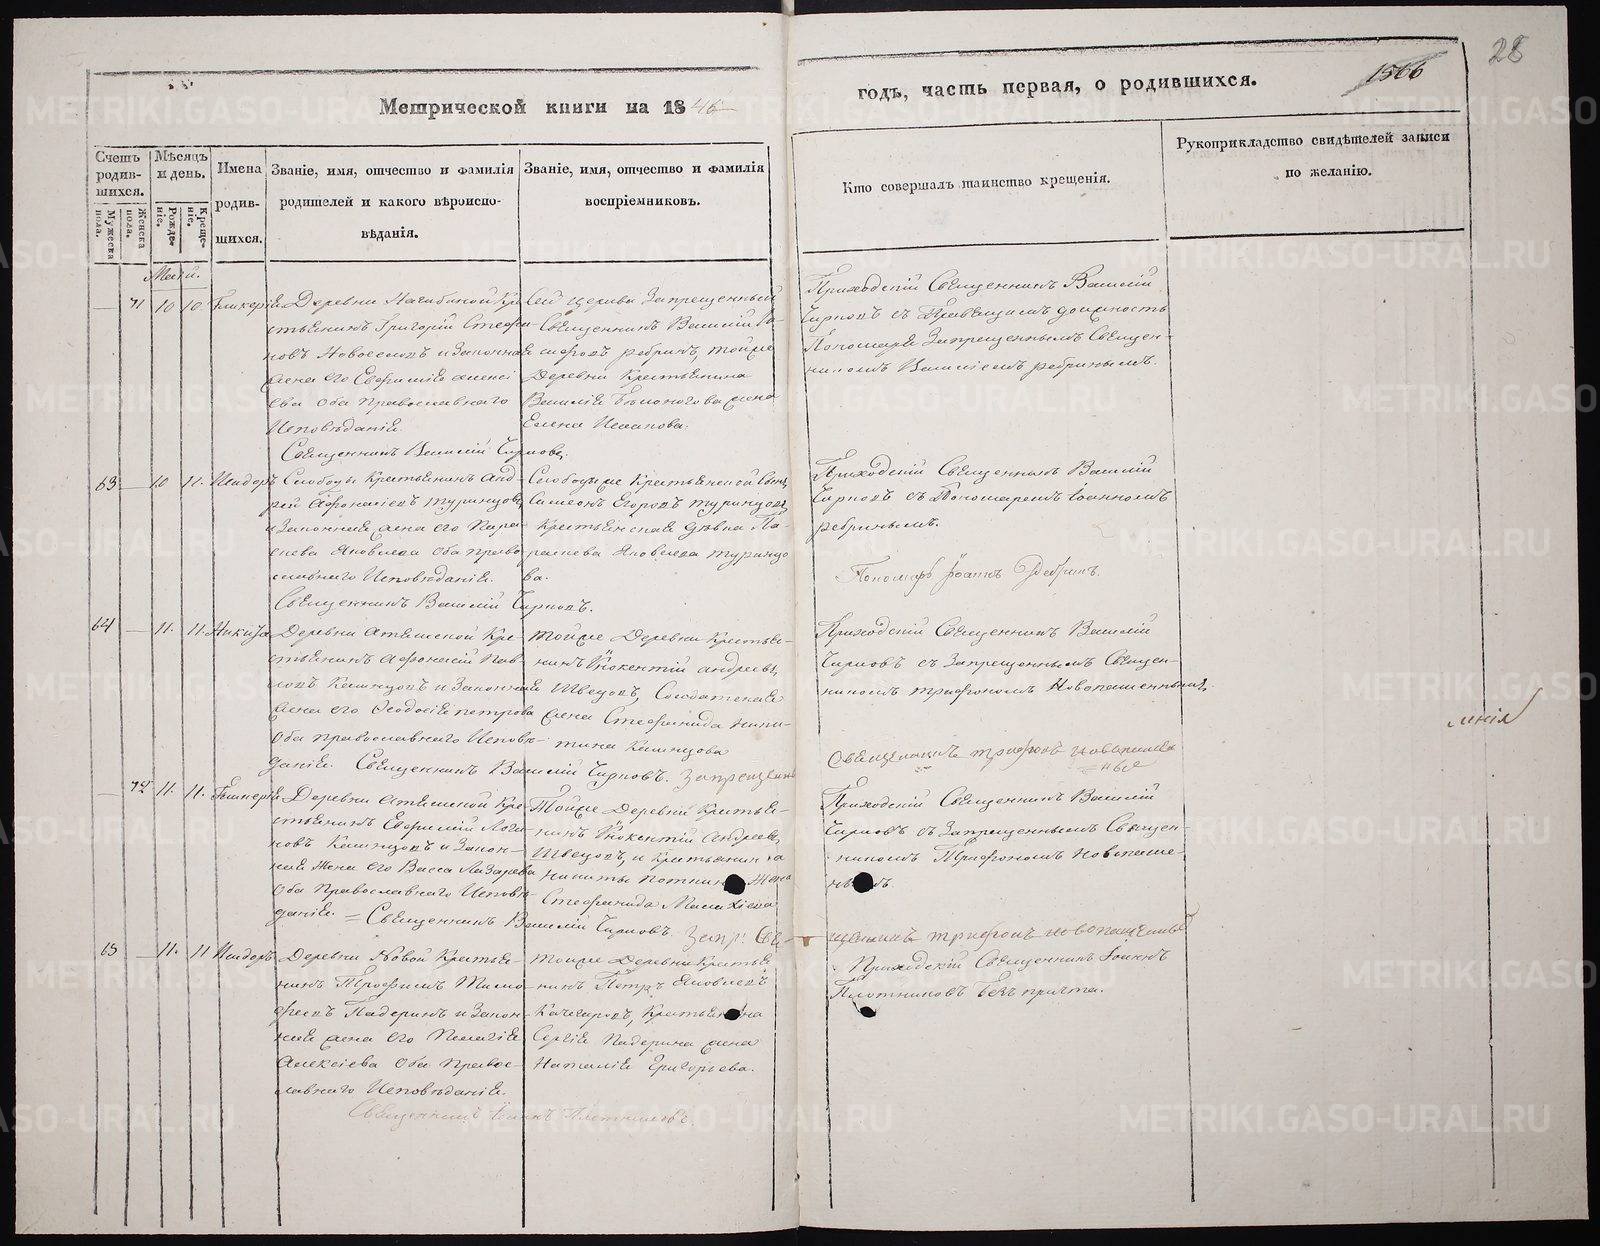 28
1566
Метрической книги на 1846
годъ, часть первая, о родившихся.
Счетъ родив-шихся.
Мужеска пола.
Женска пола.
Мѣсяцъ и день.
Рожде-ніе.
Креще-ніе.
Имена родив-шихся.
Званіе, имя, отчество и фамилія
родителей и какого вѣроиспо-
вѣданія.
Званіе, имя, отчество и фамилія
воспріемниковъ.
Кто совершалъ таинство крещенія.
Рукоприкладство свидѣтелей записи
по желанію.
Маій.
71 10 10 Гликерія
Деревни Нагибиной Кре
стьянинъ Григорій Стефа-
новъ Новоселовъ и Законная
жена его Евфимія алексі
ева оба православнаго
Исповѣданія.
Священникъ Василій Чирковъ.
Сей церкви Запрещенный
Священникъ Василій
ребринъ, тойже
Деревни Крестьянина
Василія жена
Елена Иванова.
Приходскій Священникъ Василій
Чирковъ съ должность
Пономаря Запрещеннымъ Священ-
никомъ Василіемъ ребринымъ.
63 10 11 Исидоръ
Слободы Крестьянинъ Анд-
рей Афонасіевъ туринцовъ
и Законная жена его Пара-
скева Яковлева оба право
славнаго Исповѣданія.
Священникъ Василій Чирковъ.
Симеонъ Егоровъ туринцовъ
Крестьянская дѣвка Па-
раскева Яковлева туринцо
ва.
Приходскій Священникъ Василій
Чирковъ съ Пономаремъ Іоанномъ
ребринымъ.
Пономарь Іоаннъ Ребринъ.
64 11 11 Никита
Деревни Кре-
стьянинъ Афонасій Пав-
ловъ Кашицовъ и Законная
жена его Ѳеодосія петрова
Оба православнаго Исповѣ-
данія. Священникъ Василій Чирковъ. Запрещенн
тойже Деревни Крестья-
нинъ Инокентій андреевъ
Швецовъ, Солдатская
жена Стефанида Ники-
тина Кашицова
Приходскій Священникъ Василій
Чирковъ съ Запрещеннымъ Священ-
никомъ трифономъ Новопашеннымъ.
Священникъ трифонъ новопаше
нный
72 11 11 Гликерія
Деревни Кре-
стьянинъ Ефимій Логи-
новъ Кашицовъ и Закон-
ная Жена его Васса Лазарева
Оба православнаго Исповѣ-
данія. = Священникъ Василій Чирковъ. Запр: Свя-
Тойже Деревни Крестья-
нинъ Инокентій Андреевъ
Швецовъ, и Крестьянина
Никиты Жена
Стефанида
Приходскій Священникъ Василій
Чирковъ съ Запрещеннымъ Священ-
никомъ Трифономъ Новопаше-
щенникъ трифонъ новопашенный
65 11 11 Исидоръ
Деревни Новой Крестья-
нинъ Трофимъ Тимо
феевъ Падеринъ и Закон-
ная жена его Пелагія
Алексіева Оба Право-
славнаго Исповѣданія.
Священникъ Іоаннъ Плотниковъ.
тойже Деревни Крестья
нинъ Петръ Яковлевъ
Качегаровъ, Крестьянина
Сергія Падерина жена
Наталія Григорьева.
Приходскій Священникъ Іоаннъ
Плотниковъ безъ причта.